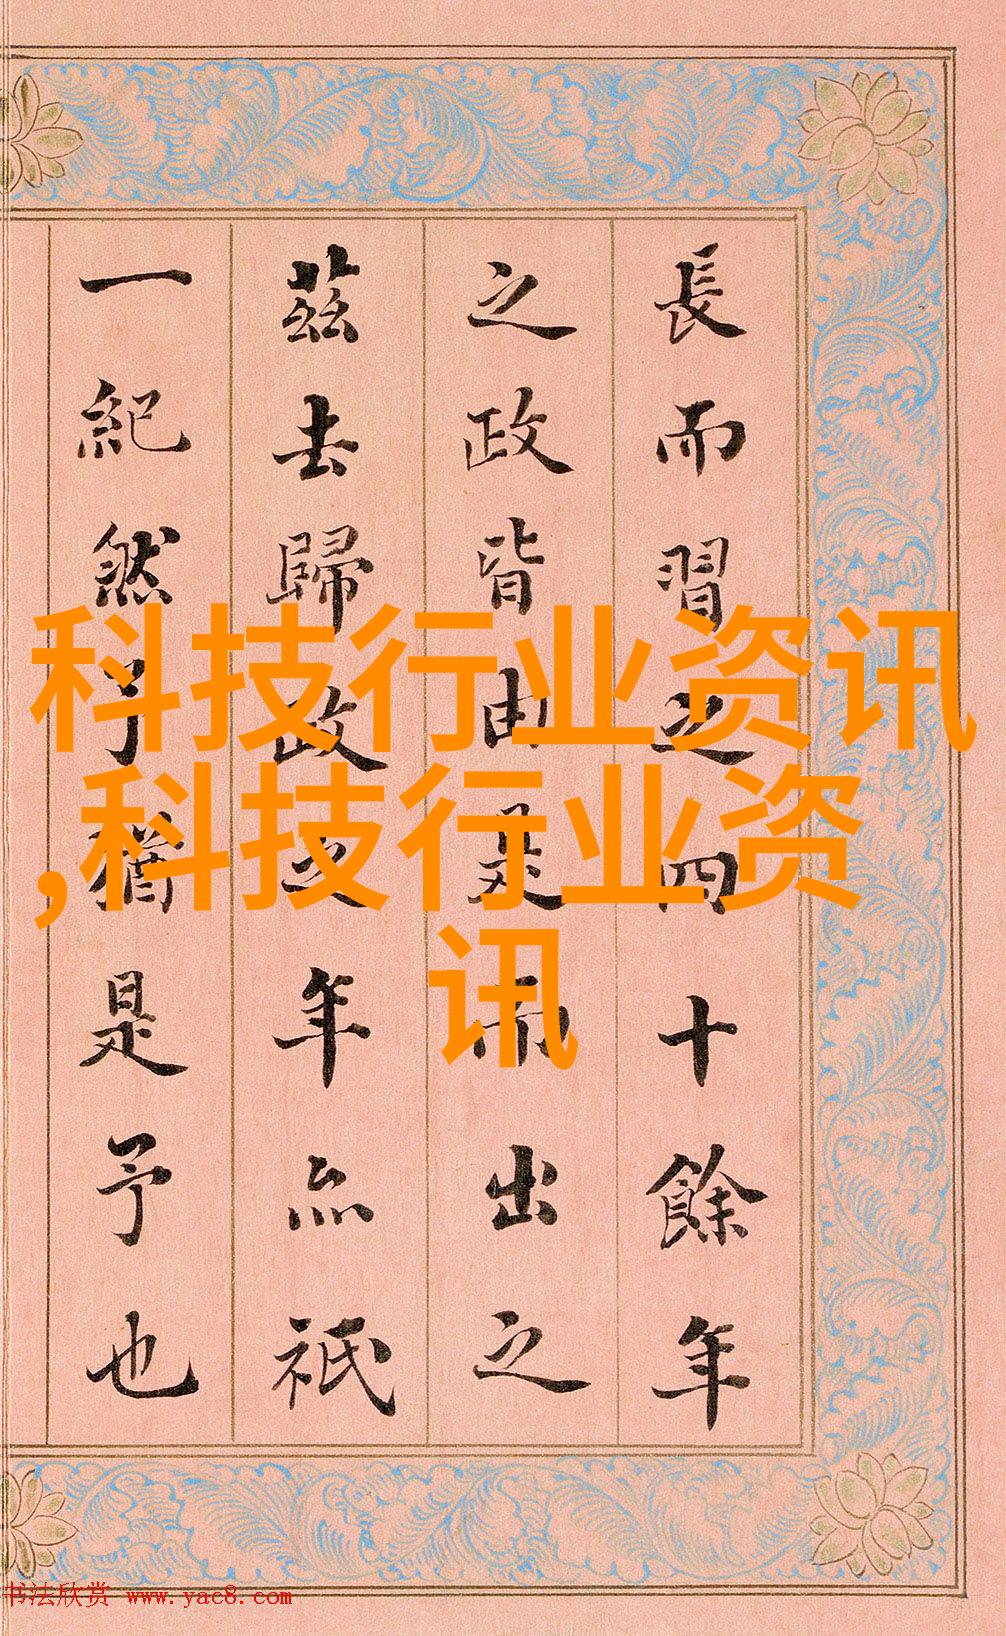 長而習之四十餘年
之政皆由是而出之
茲去歸政之年亦祇
一紀然予猶是予也
科技行业资讯
,科技行业资
讯
书法欣赏 www.yac8.com